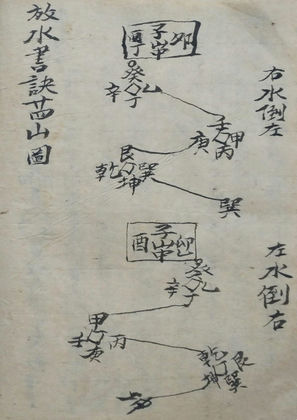 放水書訣廿四山圖
右水倒左
酉 子山 卯
丁
癸
辛 乙
丁
壬 甲
庚 丙
艮
乾 巽
坤
巽
左水倒右
酉 子山 卯
癸
辛 乙
丁
甲
壬 丙
庚
乾 艮
坤 巽